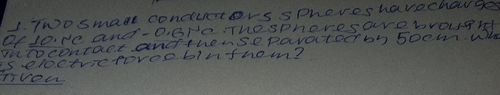 1. Two small conductors spheres have charges
of 10nc and -0.6nc The spheres are brought
into contact and then separated by 50cm. Wha
is electric force b/n them?
Given